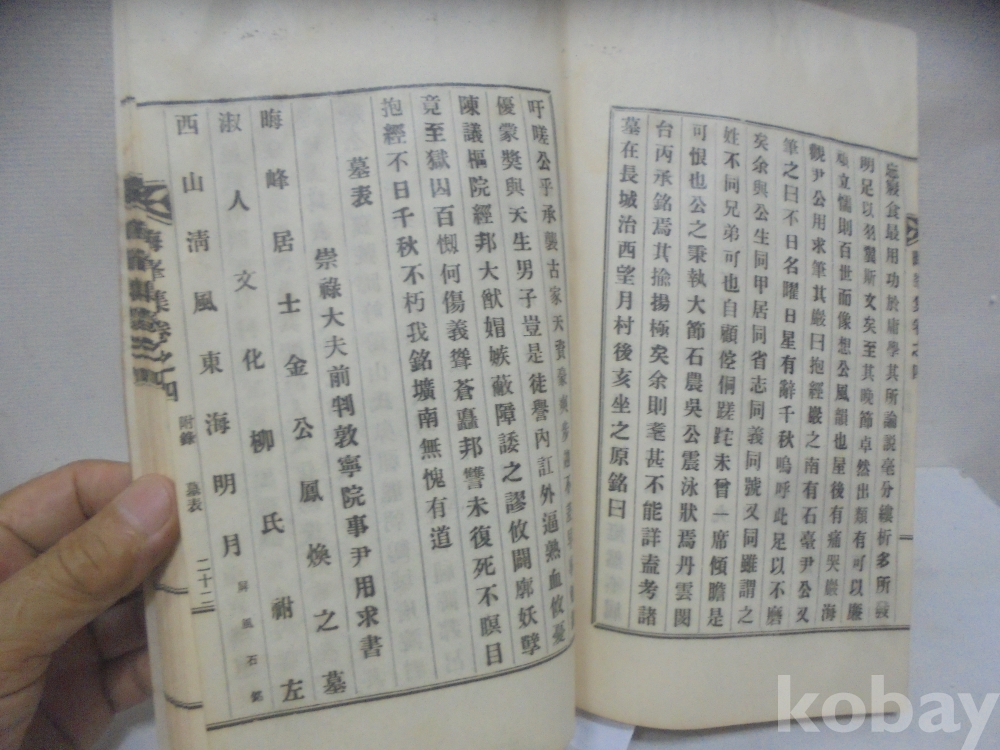 忘寢食最用功於庸學其所論說毫分縷析多所發
明足以名賢斯文矣至其晚節卓然出類有可以廉
頑立懦則百世而像想公風韻也屋後有痛哭巖海
觀尹公用求筆其巖曰抱經巖之南有石臺尹公又
筆之曰不日名曜日星有辭千秋嗚呼此足以不磨
矣余與公生同甲居同省志同義同號又同雖謂之
姓不同兄弟可也自顧倥侗蹉跎未曾一席傾瞻是
可恨也公之秉執大節石農吳公震泳狀焉丹雲閔
台丙承銘焉其揄揚極矣余則耄甚不能詳盍考諸
墓在長城治西望月村後亥坐之原銘曰
吁嗟公乎承襲古家天資豪
優蒙獎與天生男子豈是徒譽內訌外逼熱血攸憂
陳議樞院經邦大猷媢嫉蔽障諉之謬攸闢廓妖孼
竟至獄囚百懶何傷義聳蒼矗邦讐未復死不瞑目
抱經不日千秋不朽我銘壙南無愧有道
墓表
崇祿大夫前判敦寧院事尹用求書
晦峰居士金公鳳煥之墓
淑人文化柳氏祔左
西山淸風東海明月 屛風石銘
晦峯集卷之四 附錄 墓表 二十二
kobay